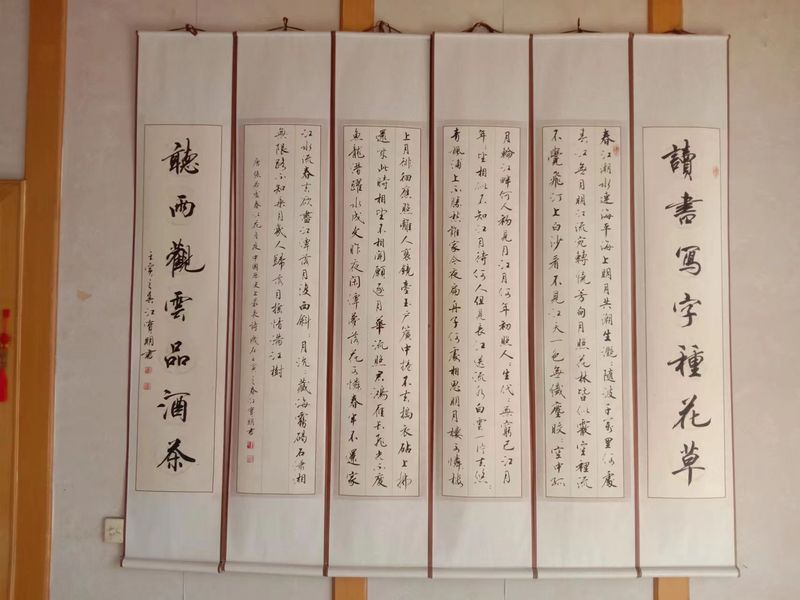 讀書寫字種花草
春江潮水連海平海上明月共潮生灩:隨波千萬里何處
春江無月明江流宛轉繞芳甸月照花林皆似霰空裡流
不覺飛汀上白沙看不見江天一色無纖塵皎:空中孤
月輪江畔何人初見月江月何年初照人:生代:無窮已江月
年:望相似不知江月待何人但見長江送流水白雲一片去悠:
青楓浦上不勝愁誰家今夜扁舟子何處相思明月樓可憐樓
上月徘徊應照離人妝鏡臺玉戶簾中捲不去搗衣砧上拂
還來此時相望不相聞願逐月華流照君鴻雁長飛光不度
魚龍潛躍水成文昨夜閑潭夢落花可憐春半不還家
江水流春去欲盡江潭落月復西斜:月沉:藏海霧碣石瀟湘
無限路不知乘月幾人歸落月搖情滿江樹
唐張若虛春江花月夜
聽雨觀雲品酒茶